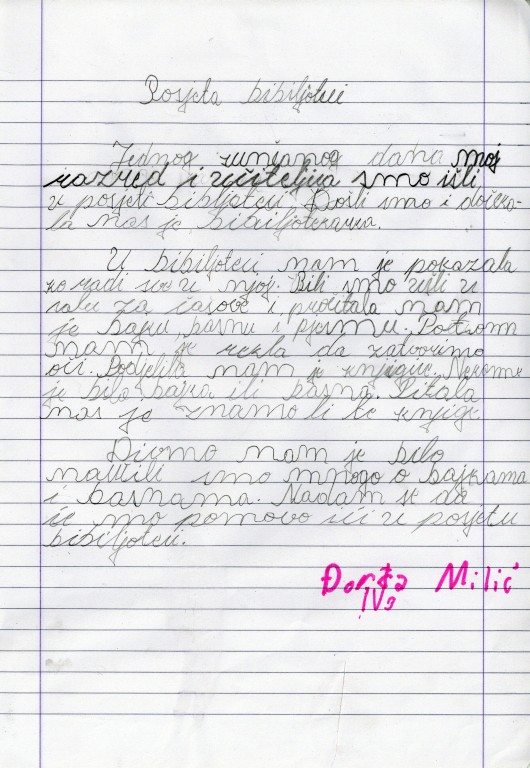 Posjeta bibiljoteci
Jednog sunčanog dana moj
razred i učiteljica smo išli
u posjeti bibljoteci. Došli smo i dočeka-
la nas je bibiljotekarka.
U bibiljoteci nam je pokazala
ko radi sve u njoj. Bili smo ušli u
salu za časove i pročitala nam
je bajku, basnu i pjesmu. Potom
nam je rekla da zatvorimo
oči. Podjelila nam je knjige. Nekome
je bila bajka ili basna. Pitala
nas je znamo li te knjige.
Divno nam je bilo
naučili smo mnogo o bajkama
i basnama. Nadam se da
će mo ponovo ići u posjetu
bibiljoteci.
Đorđa Milić
IV3